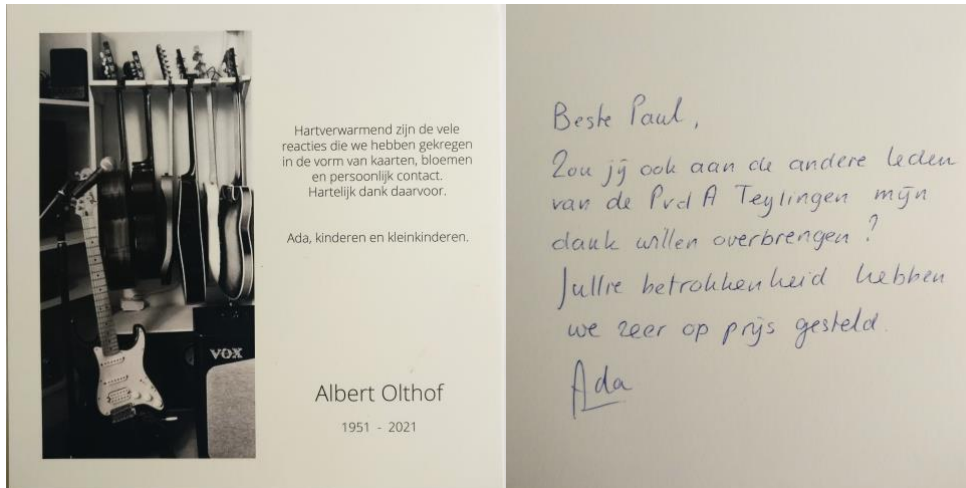 Hartverwarmend zijn de vele
reacties die we hebben gekregen
in de vorm van kaarten, bloemen
en persoonlijk contact.
Hartelijk dank daarvoor.
Ada, kinderen en kleinkinderen.
VOX
Albert Olthof
1951 - 2021
Beste Paul,
Zou jij ook aan de andere leden
van de PvdA Teylingen mijn
dank willen overbrengen?
Jullie betrokkenheid hebben
we zeer op prijs gesteld.
Ada